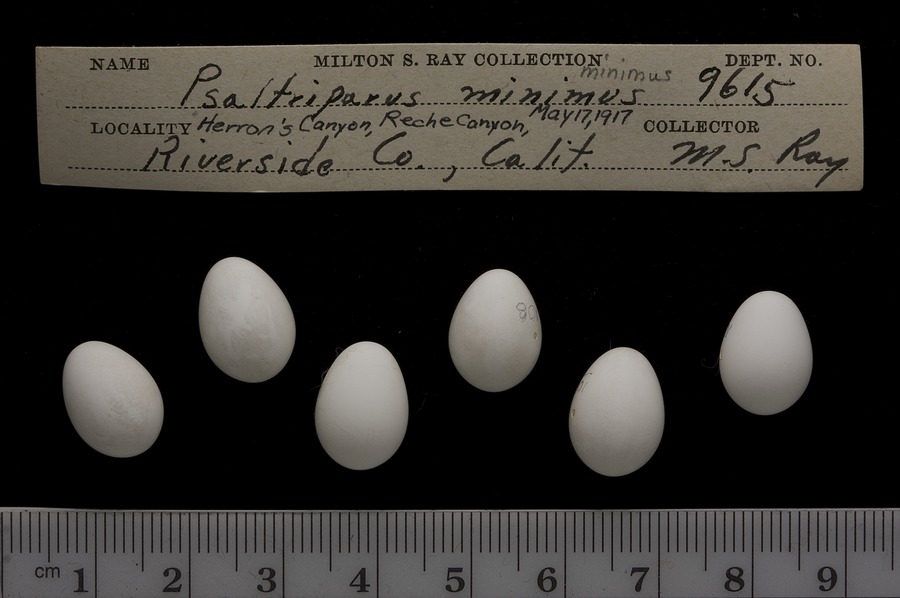 NAME MILTON S. RAY COLLECTION DEPT. NO.
minimus
Psaltriparus minimus 9615
LOCALITY Herron's Canyon, Reche Canyon, May 17, 1917 COLLECTOR
Riverside Co., Calif. M.S. Ray
80
cm 1 2 3 4 5 6 7 8 9